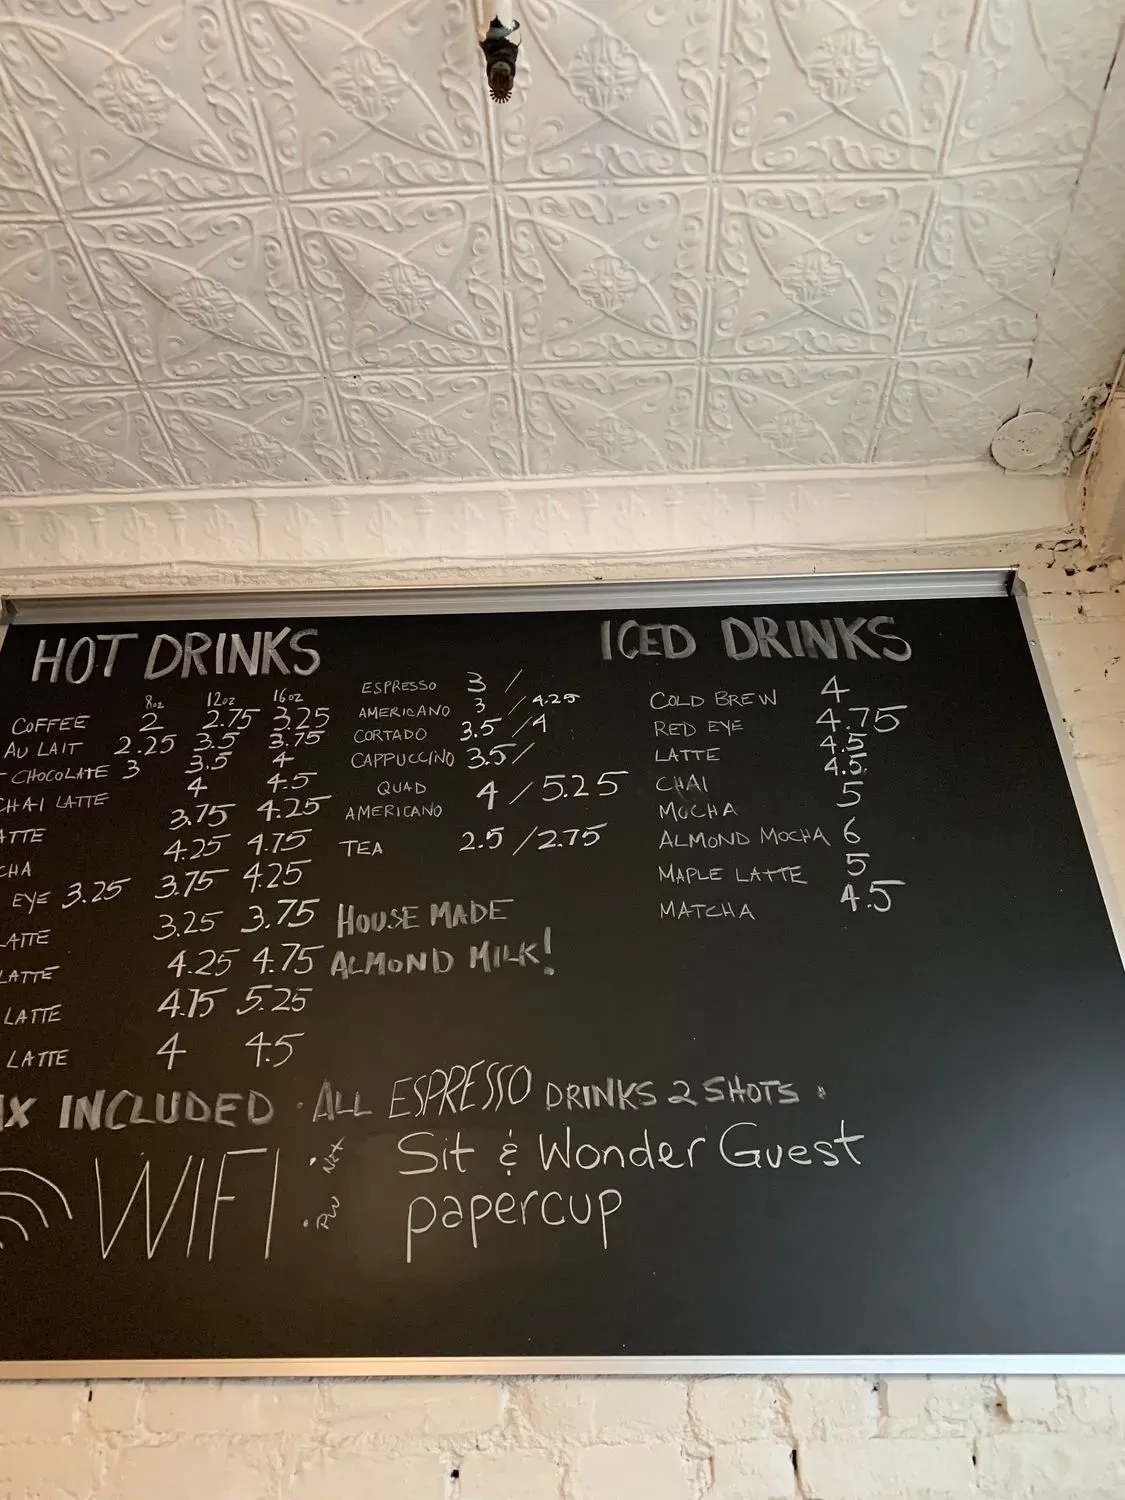 HOT DRINKS
8oz 12oz 16oz
COFFEE 2 2.75 3.25
AU LAIT 2.25 3.5 3.75
CHOCOLATE 3 3.5 4
CHAI LATTE 4 4.5
3.75 4.25
4.25 4.75
EYE 3.25 3.75 4.25
LATTE 3.25 3.75
LATTE 4.25 4.75
LATTE 4.75 5.25
LATTE 4 4.5
ESPRESSO 3 /
AMERICANO 3 / 4.25
CORTADO 3.5 / 4
CAPPUCCINO 3.5 /
QUAD
AMERICANO 4 / 5.25
TEA 2.5 / 2.75
HOUSE MADE
ALMOND MILK!
ICED DRINKS
COLD BREW 4
RED EYE 4.75
LATTE 4.5
CHAI 4.5
MOCHA 5
ALMOND MOCHA 6
MAPLE LATTE 5
MATCHA 4.5
INCLUDED · ALL ESPRESSO DRINKS 2 SHOTS ·
WIFI
· Net Sit & Wonder Guest
· PW papercup